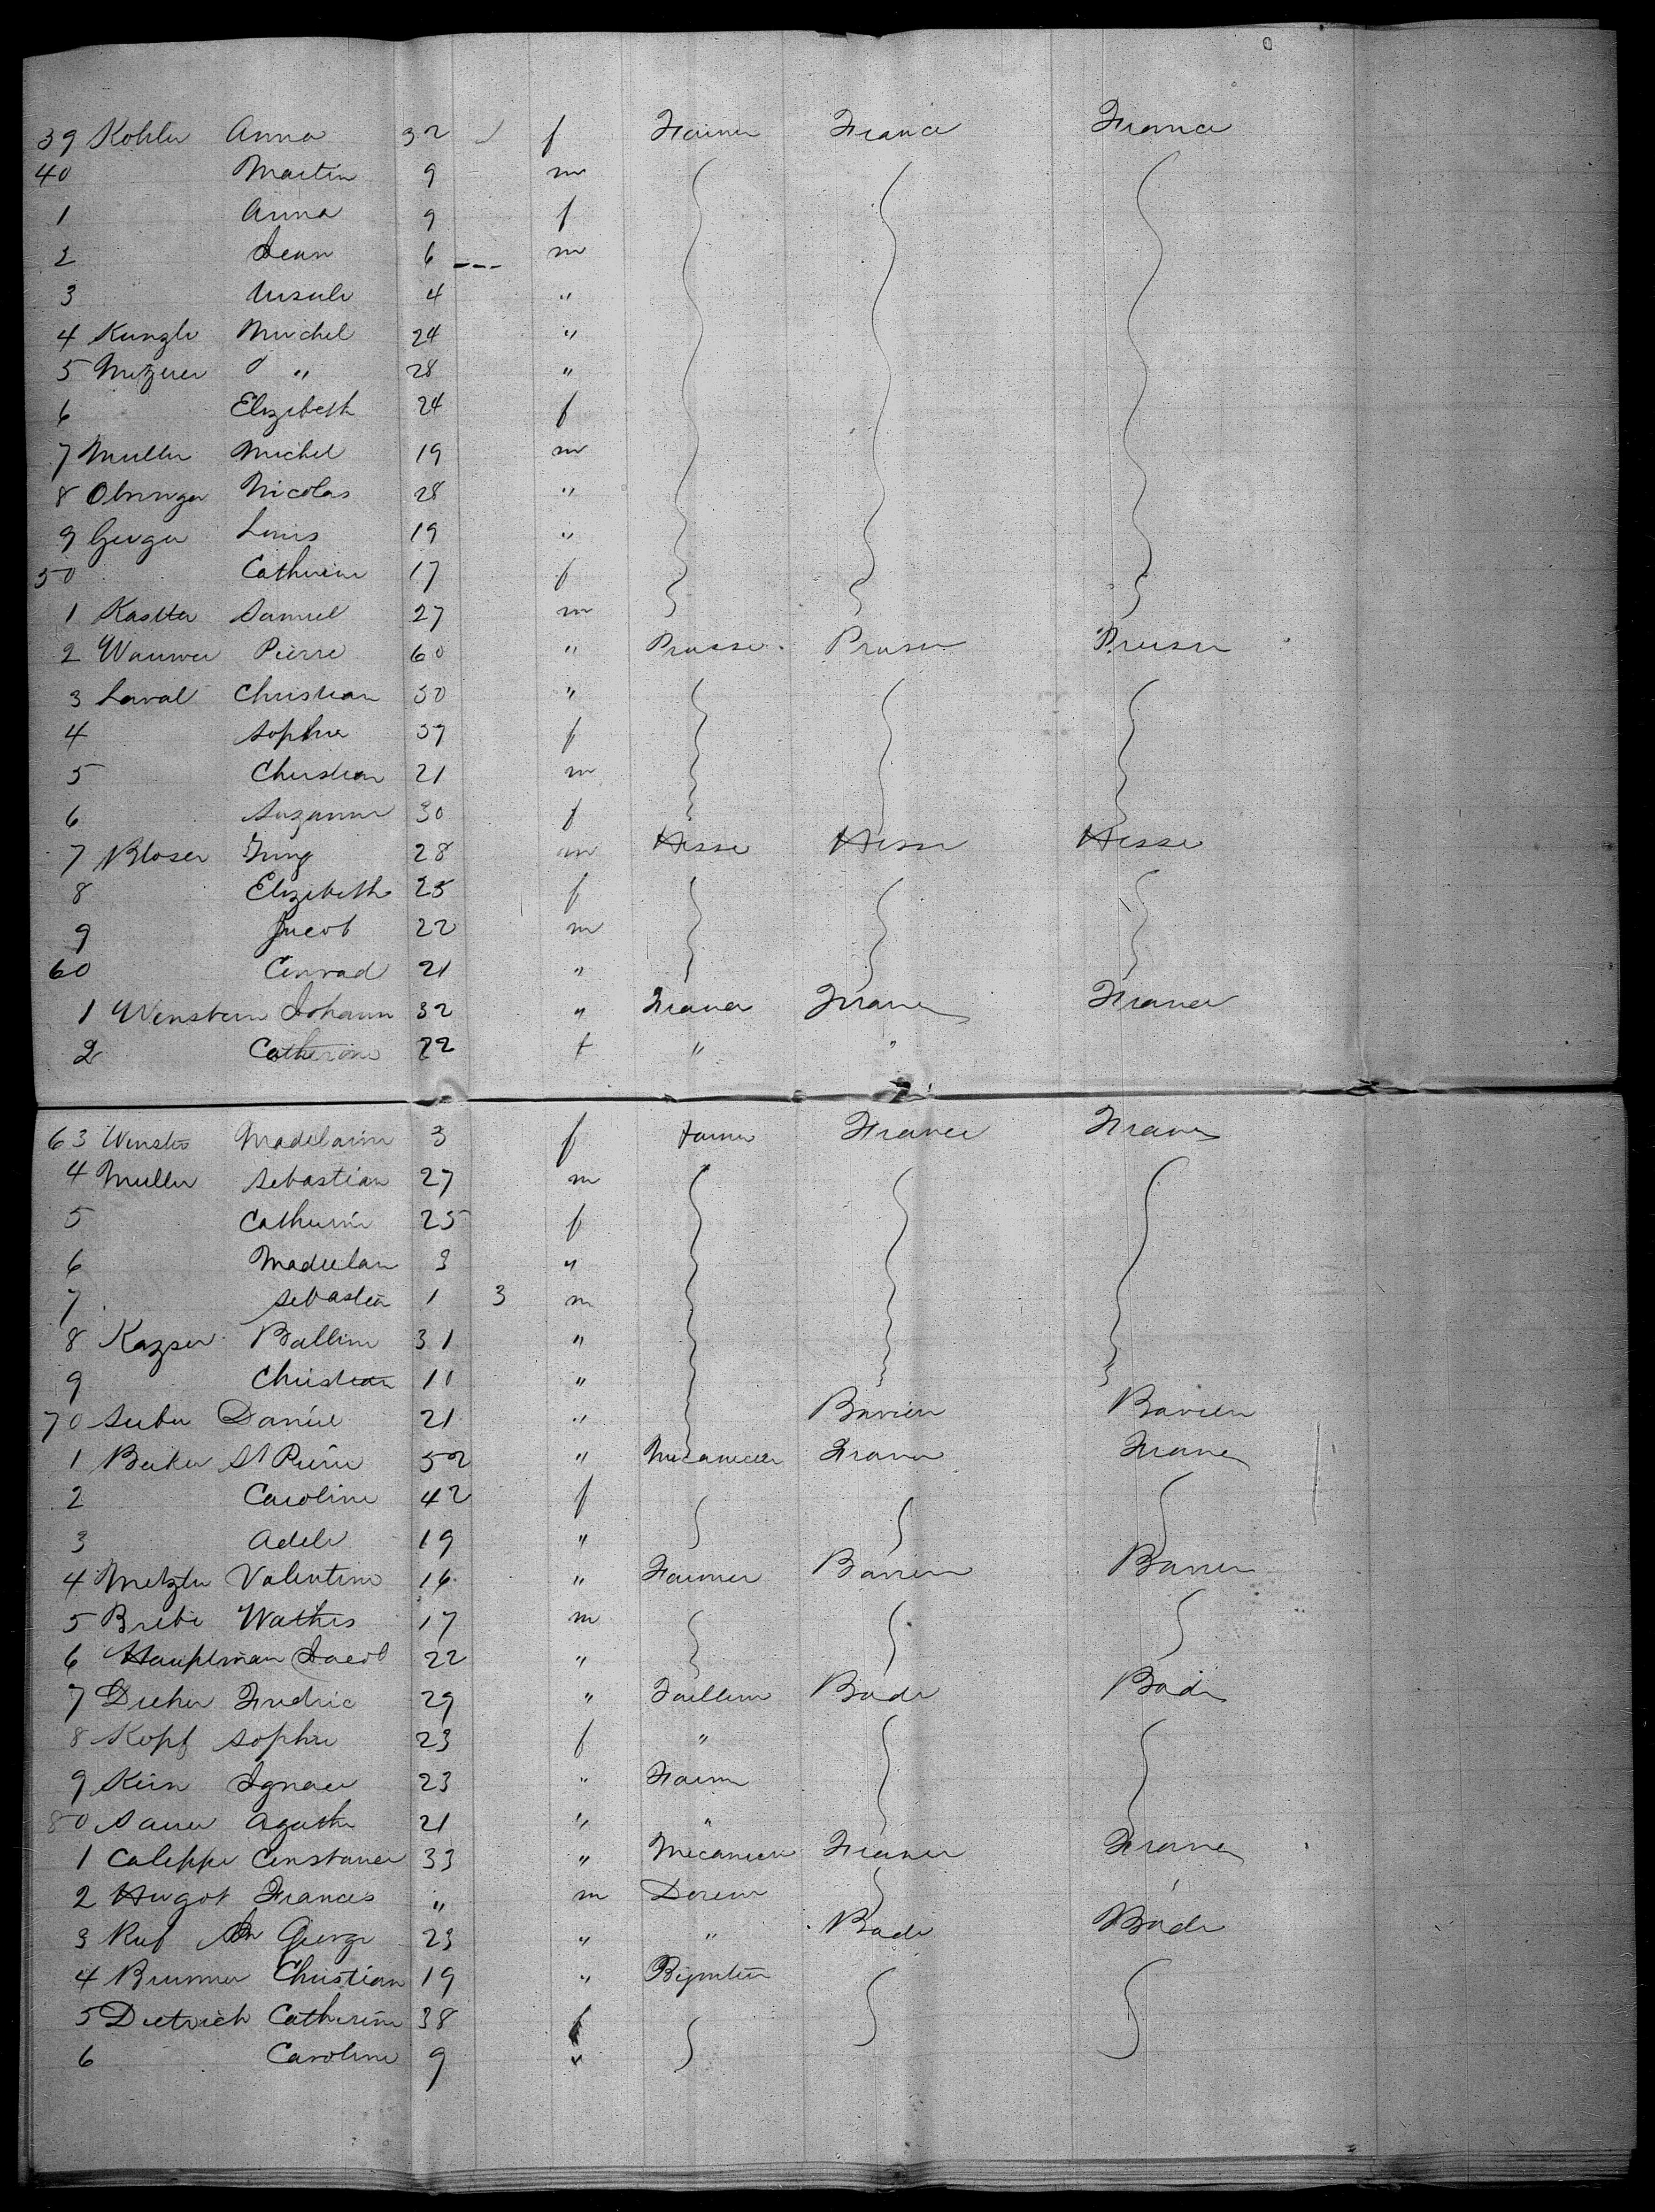 39 Kohler Anna 32 f Farmer France France
40 Martin 9 m
1 Anna 9 f
2 Jean 6 m
3 Ursule 4 "
4 Kunzle Michel 24 "
5 Metzger " 28 "
6 Elizabeth 24 f
7 Muller Michel 19 m
8 Nicolas 28 "
9 Geiger Louis 19 "
50 Catherine 17 f
1 Samuel 27 m
2 Pierre 60 " Prusse Prusse Prusse
3 Laval Christian 50 "
4 Sophie 39 f
5 Christian 21 m
6 Suzanne 30 f
7 Bloser Jung 28 m Hesse Hesse Hesse
8 Elizabeth 25 f
9 Jacob 22 m
60 Conrad 21 "
1 Winstein Johann 32 " France France France
2 Catherine 22 f " "
63 Madelaine 3 f Farmer France France
4 Muller Sebastian 27 m
5 Catherine 25 f
6 3 "
7 Sebastian 1 3 m
8 31 "
9 Christian 10 "
70 Daniel 21 " Baviere Baviere
1 Beker St Pierre 52 " Mecanicien France France
2 Caroline 42 f
3 Adele 19 "
4 Metzler Valentine 16 " Farmer Baviere Baviere
5 17 m
6 Hauptman Jacob 22 "
7 Fredric 29 " Bade Bade
8 Kopf Sophie 23 f "
9 Ignace 23 " Farmer
80 Sauer Agathe 21 " "
1 Constance 33 " Mecanicien France France
2 Hugot Frances " m
3 Ruf George 23 " " Bade Bade
4 Brunner Christian 19 "
5 Dietrich Catherine 38 f
6 Caroline 9 "